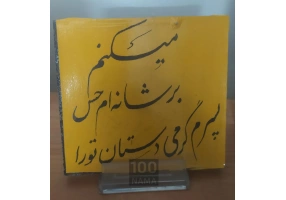 میکنم
بر شانه ام حس
پسرم گرمی دستان تو را
100
NAMA